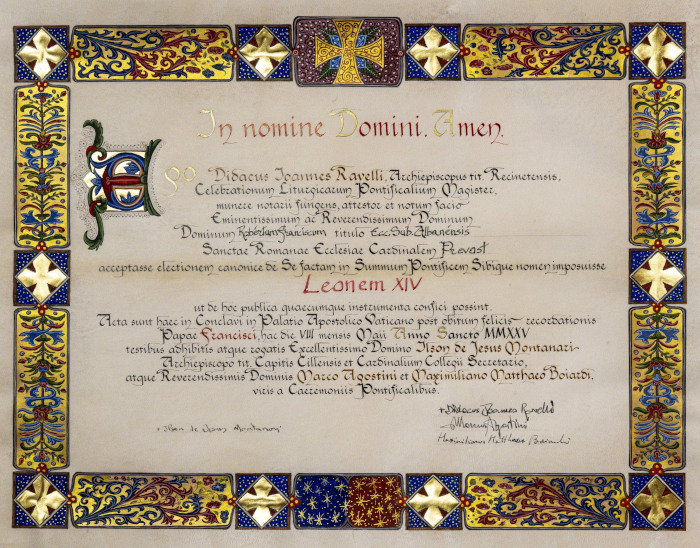 In nomine Domini. Amen.
Ego Didacus Ioannes Ravelli, Archiepiscopus tit. Recinetensis,
Celebrationum Liturgicarum Pontificalium Magister,
munere notarii fungens, attestor et notum facio
Eminentissimum ac Reverendissimum Dominum
Dominum Robertum Franciscum titulo Ecc. Sub. Albanensis
Sanctae Romanae Ecclesiae Cardinalem Prevost
acceptasse electionem canonice de Se factam in Summum Pontificem Sibique nomen imposuisse
Leonem XIV
ut de hoc publica quaecumque instrumenta confici possint.
Acta sunt haec in Conclavi in Palatio Apostolico Vaticano post obitum felicis recordationis
Papae Francisci, hac die VIII mensis Maii Anno Sancto MMXXV
testibus adhibitis atque rogatis Excellentissimo Domino Ilson de Jesus Montanari
Archiepiscopo tit. Capitis Cillensis et Cardinalium Collegii Secretario,
atque Reverendissimis Dominis Marco Agostini et Maximiliano Matthaeo Boiardi,
viris a Caeremoniis Pontificalibus.
+ Didacus Joannes Ravelli
Marcus Agostini
+ Ilson de Jesus Montanari
Maximilianus Matthaeus Boiardi